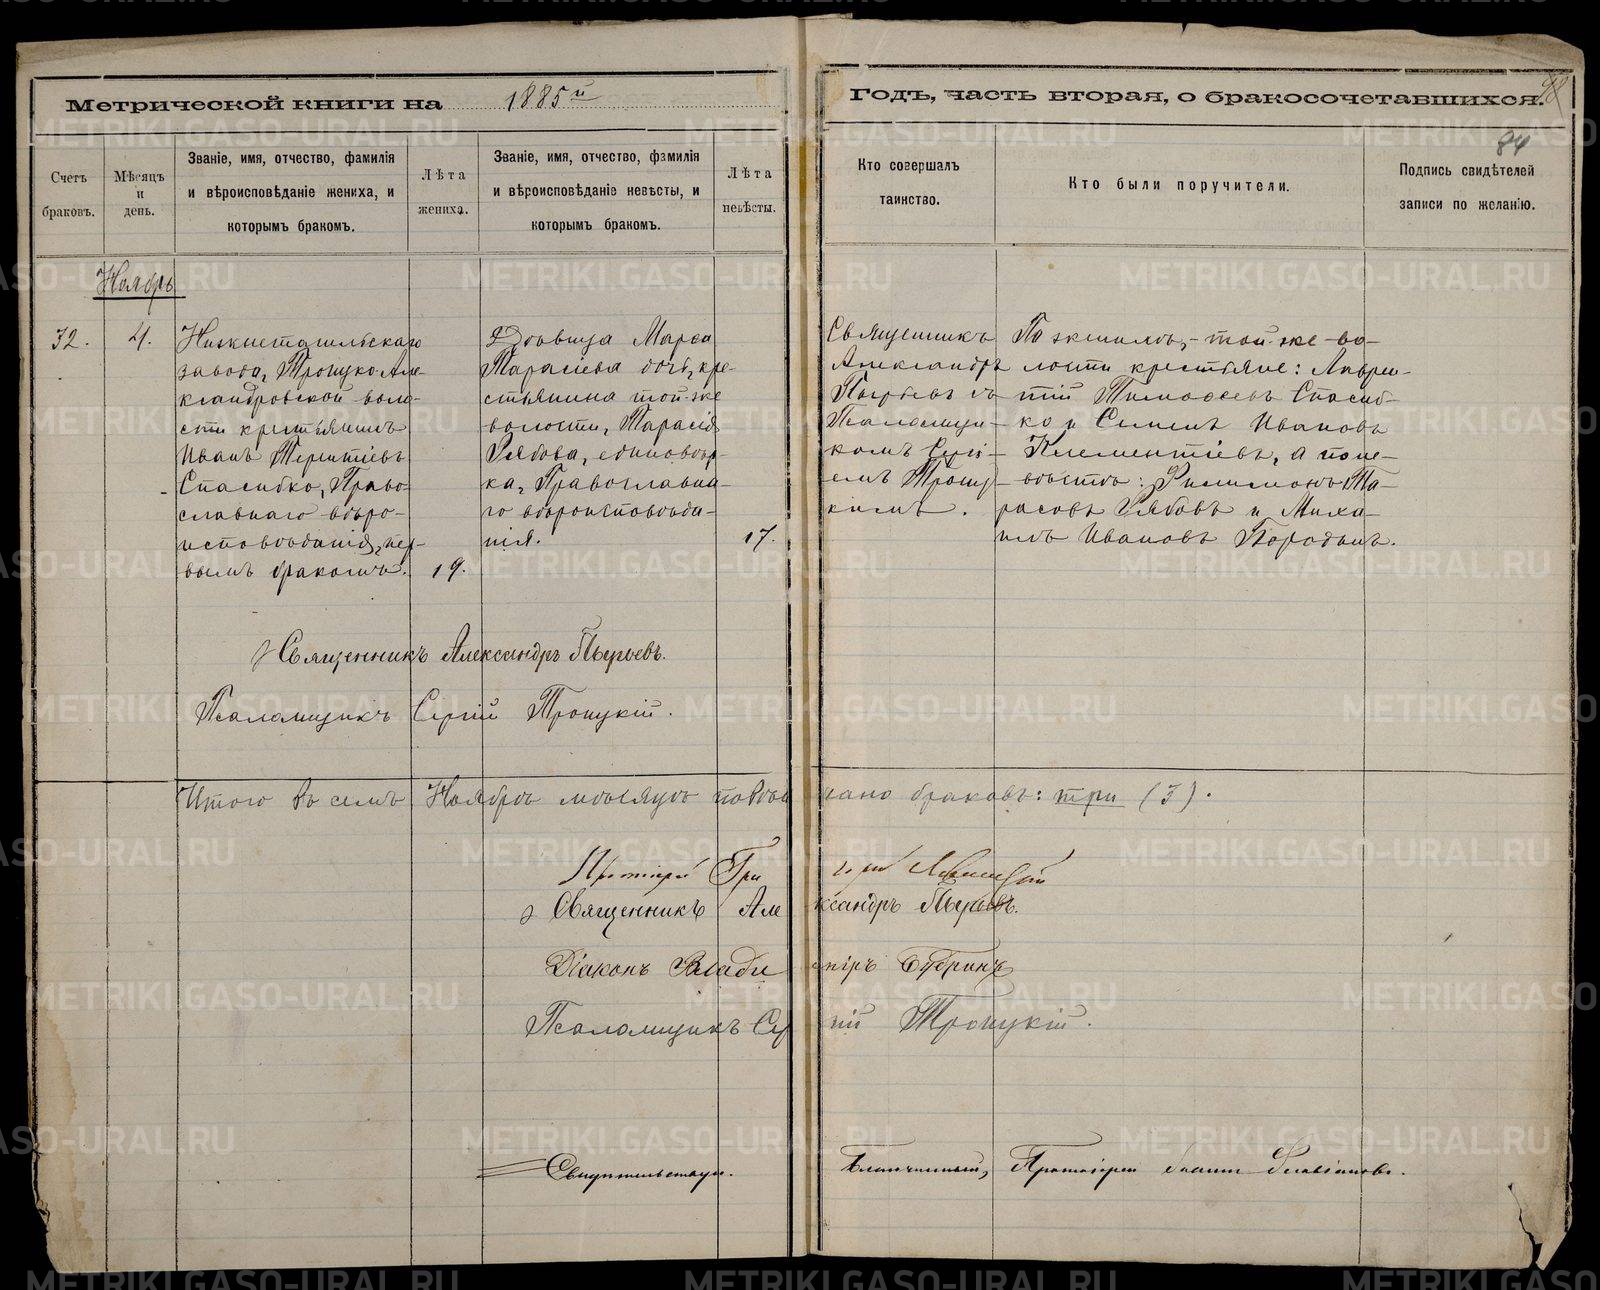 Метрической книги на 1885й
Годъ, часть вторая, о бракосочетавшихся.
84
Счетъ браковъ.
Мѣсяцъ и день.
Званіе, имя, отчество, фамилія
и вѣроисповѣданіе жениха, и
которымъ бракомъ.
Лѣта жениха.
Званіе, имя, отчество, фамилія
и вѣроисповѣданіе невѣсты, и
которымъ бракомъ.
Лѣта невѣсты.
Кто совершалъ
таинство.
Кто были поручители.
Подпись свидѣтелей
записи по желанію.
Ноябрь
32.
4.
Нижнетагильскаго
завода, Троицко-Але-
ксандровской воло-
сти крестьянинъ
Иванъ Терентіевъ
Спасибко, Право-
славнаго вѣро-
исповѣданія, пер-
вымъ бракомъ.
19.
Дѣвица Марѳа
Тарасіева дочь, кре-
стьянина той-же
волости, Тарасія
Рябова, единовѣр-
ка, Православна-
го вѣроисповѣда-
нія.
17.
Священникъ
Александръ
Пырьевъ съ
Псаломщи-
комъ Сергі-
емъ Троиц-
кимъ.
По женихѣ, - той-же во-
лости крестьяне: Лаврен-
тій Тимоѳеевъ Спасиб-
ко и Семенъ Ивановъ
Клементіевъ, а по не-
вѣстѣ: Филимонъ Та-
расовъ Рябовъ и Миха-
илъ Ивановъ Бородинъ.
Священникъ Александръ Пырьевъ.
Псаломщикъ Сергій Троицкій.
Итого въ семъ Ноябрѣ мѣсяцѣ повѣнчано браковъ: три (3).
Протіерей Григорій
Священникъ Александръ Пырьевъ.
Діаконъ Владиміръ
Псаломщикъ Сергій Троицкій.
Свидѣтельствую.
Благочинный, Протоіерей Іоаннъ
METRIKI.GASO-URAL.RU